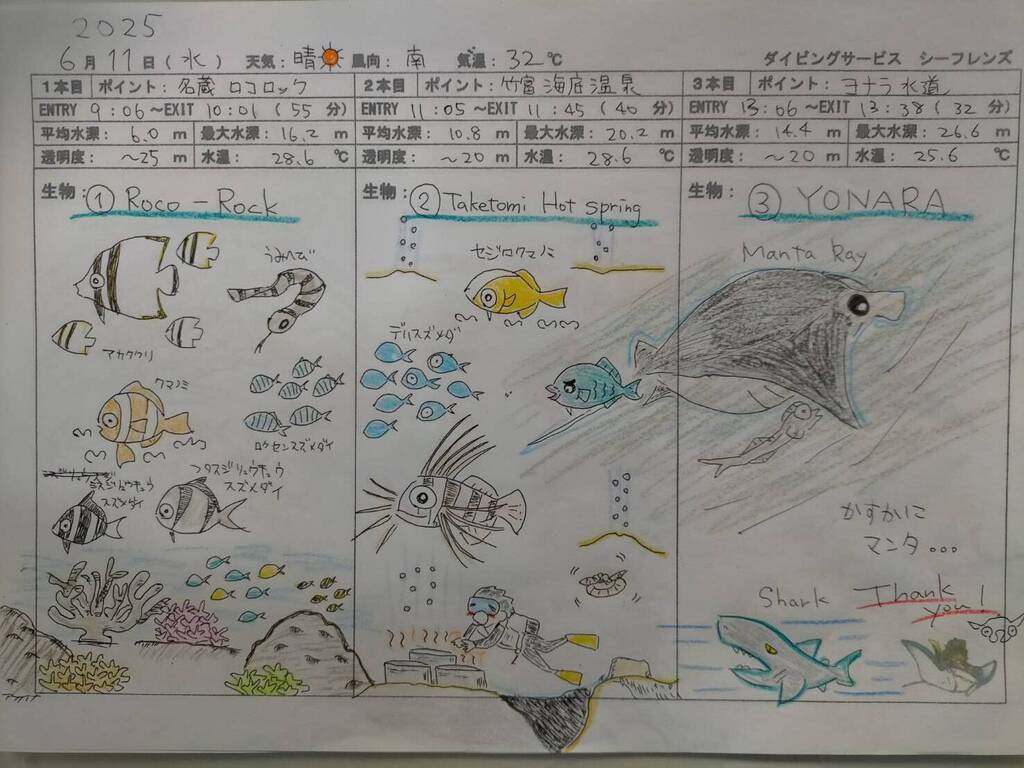 2025
6月11日(水) 天気:晴 風向:南 気温:32℃ ダイビングサービス シーフレンズ
1本目 ポイント:名蔵 ロコロック
ENTRY 9:06~EXIT 10:01(55 分)
平均水深: 6.0 m 最大水深:16.2 m
透明度: ~25 m 水温: 28.6 ℃
生物:① Roco-Rock
うみへび
アカククリ
クマノミ
ロクセンスズメダイ
ミスジリュウキュウ
スズメダイ
フタスジリュウキュウ
スズメダイ
2本目 ポイント:竹富 海底温泉
ENTRY 11:05~EXIT 11:45(40 分)
平均水深: 10.8 m 最大水深:20.2 m
透明度: ~20 m 水温: 28.6 ℃
生物:② Taketomi Hot spring
セジロクマノミ
デバスズメダイ
3本目 ポイント:ヨナラ水道
ENTRY 13:06~EXIT 13:38(32 分)
平均水深: 14.4 m 最大水深:26.6 m
透明度: ~20 m 水温: 25.6 ℃
生物: ③ YONARA
Manta Ray
かすかに
マンタ...
Shark
Thank
you!